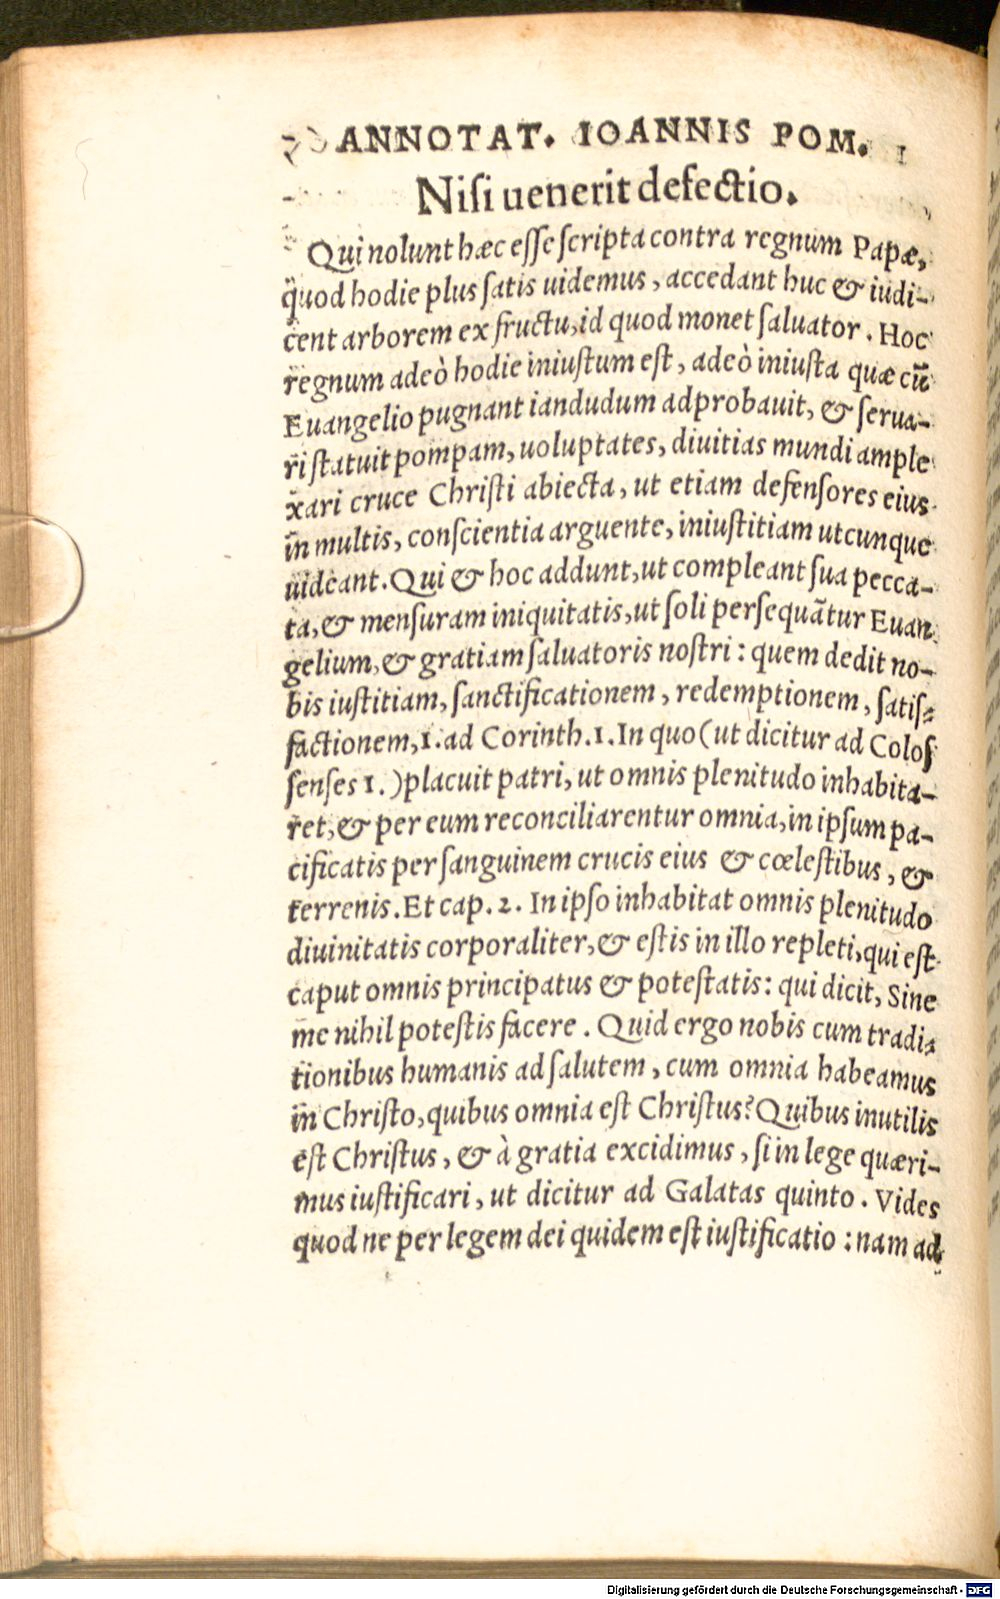 ANNOTAT. IOANNIS POM.
Niſi uenerit defectio.
Qui nolunt hæc eſſe ſcripta contra regnum Papæ,
quod hodie plus ſatis uidemus, accedant huc & iudi-
cent arborem ex fructu, id quod monet ſaluator. Hoc
regnum adeò hodie iniuſtum eſt, adeò iniuſta quæ cũ
Euangelio pugnant iandudum adprobauit, & ſerua-
ri ſtatuit pompam, uoluptates, diuitias mundi ample
xari cruce Chriſti abiecta, ut etiam defenſores eius
in multis, conſcientia arguente, iniuſtitiam utcunque
uideant. Qui & hoc addunt, ut compleant ſua pecca-
ta, & menſuram iniquitatis, ut ſoli perſequãtur Euan
gelium, & gratiam ſaluatoris noſtri: quem dedit no-
bis iuſtitiam, ſanctificationem, redemptionem, ſatiſ-
factionem, 1. ad Corinth. 1. In quo (ut dicitur ad Coloſ
ſenſes 1.) placuit patri, ut omnis plenitudo inhabita-
ret, & per eum reconciliarentur omnia, in ipſum pa-
cificatis per ſanguinem crucis eius & cœleſtibus, &
terrenis. Et cap. 2. In ipſo inhabitat omnis plenitudo
diuinitatis corporaliter, & eſtis in illo repleti, qui eſt
caput omnis principatus & poteſtatis: qui dicit, Sine
me nihil poteſtis facere. Quid ergo nobis cum tradi-
tionibus humanis ad ſalutem, cum omnia habeamus
in Chriſto, quibus omnia eſt Chriſtus? Quibus inutilis
eſt Chriſtus, & à gratia excidimus, ſi in lege quæri-
mus iuſtificari, ut dicitur ad Galatas quinto. Vides
quod ne per legem dei quidem eſt iuſtificatio: nam ad
Digitalisierung gefördert durch die Deutsche Forschungsgemeinschaft - DFG